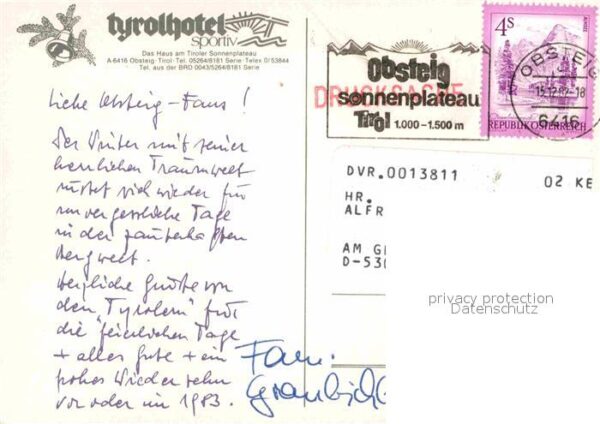 tyrolhotel
sportiv
Das Haus am Tiroler Sonnenplateau
A-6416 Obsteig · Tirol · Tel. 05264/8181 Serie · Telex 0/53844
Tel. aus der BRD 0043/5264/8181 Serie
Liebe Obsteig – Fans !
Der Winter mit seiner
herrlichen Traumwelt
rüstet sich wieder für
unvergessliche Tage
in der zauberhaften
Bergwelt.
Herzliche Grüße von
den "Tyrolern" für
die "feierlichen Tage
+ alles Gute + ein
frohes Wiedersehn
vor oder im 1983.
Fam.
DRUCKSACHE
Obsteig
sonnenplateau
Tirol 1.000 - 1.500 m
4S
REPUBLIK ÖSTERREICH
OBSTEIG
15.12.82-18
6416
DVR.0013811
02 KE
HR.
ALFR
AM GE
D-530
privacy protection
Datenschutz